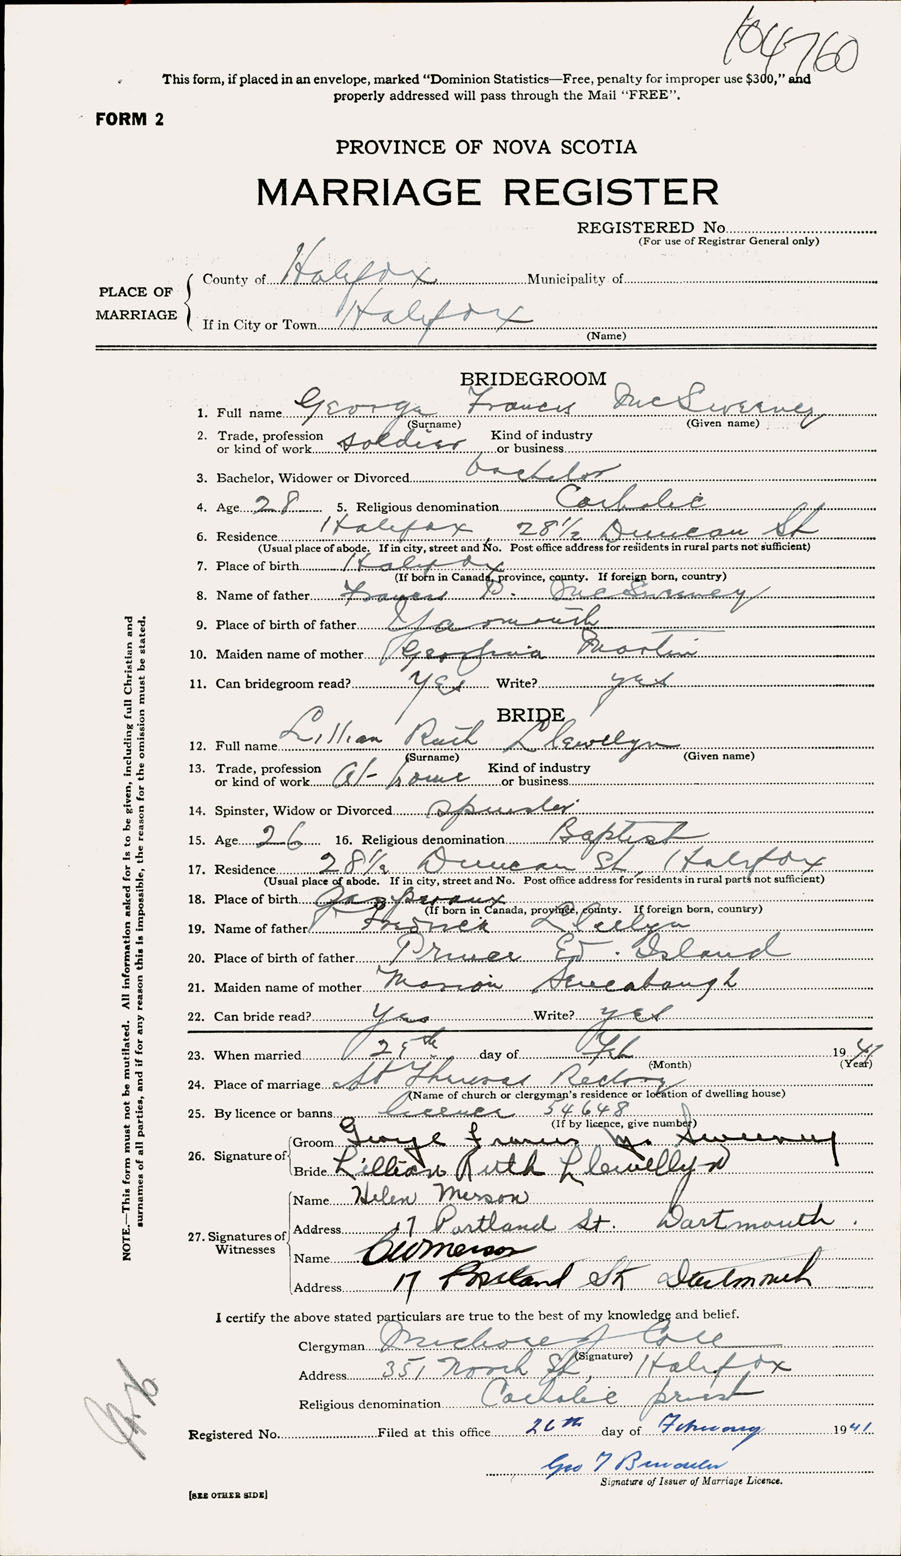 104760
This form, if placed in an envelope, marked “Dominion Statistics—Free, penalty for improper use $300,” and
properly addressed will pass through the Mail “FREE”.
FORM 2
PROVINCE OF NOVA SCOTIA
MARRIAGE REGISTER
REGISTERED No
(For use of Registrar General only)
PLACE OF MARRIAGE
County of Halifax Municipality of
If in City or Town Halifax
(Name)
BRIDEGROOM
1. Full name George Francis McSweeney
(Surname) (Given name)
2. Trade, profession or kind of work soldier Kind of industry or business
3. Bachelor, Widower or Divorced bachelor
4. Age 28 5. Religious denomination Catholic
6. Residence Halifax, 28½ Duncan St
(Usual place of abode. If in city, street and No. Post office address for residents in rural parts not sufficient)
7. Place of birth Halifax
(If born in Canada, province, county. If foreign born, country)
8. Name of father Francis P. McSweeney
9. Place of birth of father Yarmouth
10. Maiden name of mother Georgina Martin
11. Can bridegroom read? Yes Write? yes
BRIDE
12. Full name Lillian Ruth Llewellyn
(Surname) (Given name)
13. Trade, profession or kind of work At home Kind of industry or business
14. Spinster, Widow or Divorced spinster
15. Age 26 16. Religious denomination Baptist
17. Residence 28½ Duncan St, Halifax
(Usual place of abode. If in city, street and No. Post office address for residents in rural parts not sufficient)
18. Place of birth
(If born in Canada, province, county. If foreign born, country)
19. Name of father
20. Place of birth of father Prince Ed. Island
21. Maiden name of mother Marion
22. Can bride read? Yes Write? yes
23. When married 25th day of Feb 1941
(Month) (Year)
24. Place of marriage St Theresas Rectory
(Name of church or clergyman's residence or location of dwelling house)
25. By licence or banns licence 54648
(If by licence, give number)
26. Signature of
Groom George Francis McSweeney
Bride Lillian Ruth Llewellyn
27. Signatures of Witnesses
Name Helen Merson
Address 17 Portland St. Dartmouth.
Name Merson
Address 17 Portland St Dartmouth
I certify the above stated particulars are true to the best of my knowledge and belief.
Clergyman Michael J Cole
(Signature)
Address 351 North St, Halifax
Religious denomination Catholic priest
Registered No. Filed at this office 26th day of February 1941
Geo T
Signature of Issuer of Marriage Licence.
[SEE OTHER SIDE]
NOTE.—This form must not be mutilated. All information asked for is to be given, including full Christian and
surnames of all parties, and if for any reason this is impossible, the reason for the omission must be stated.